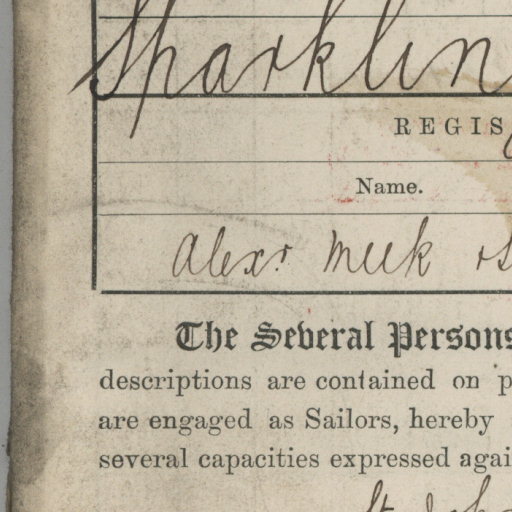 Sparklin
REGIS
Name.
Alexr Meek
The Several Persons
descriptions are contained on p
are engaged as Sailors, hereby
several capacities expressed agai
St Joh